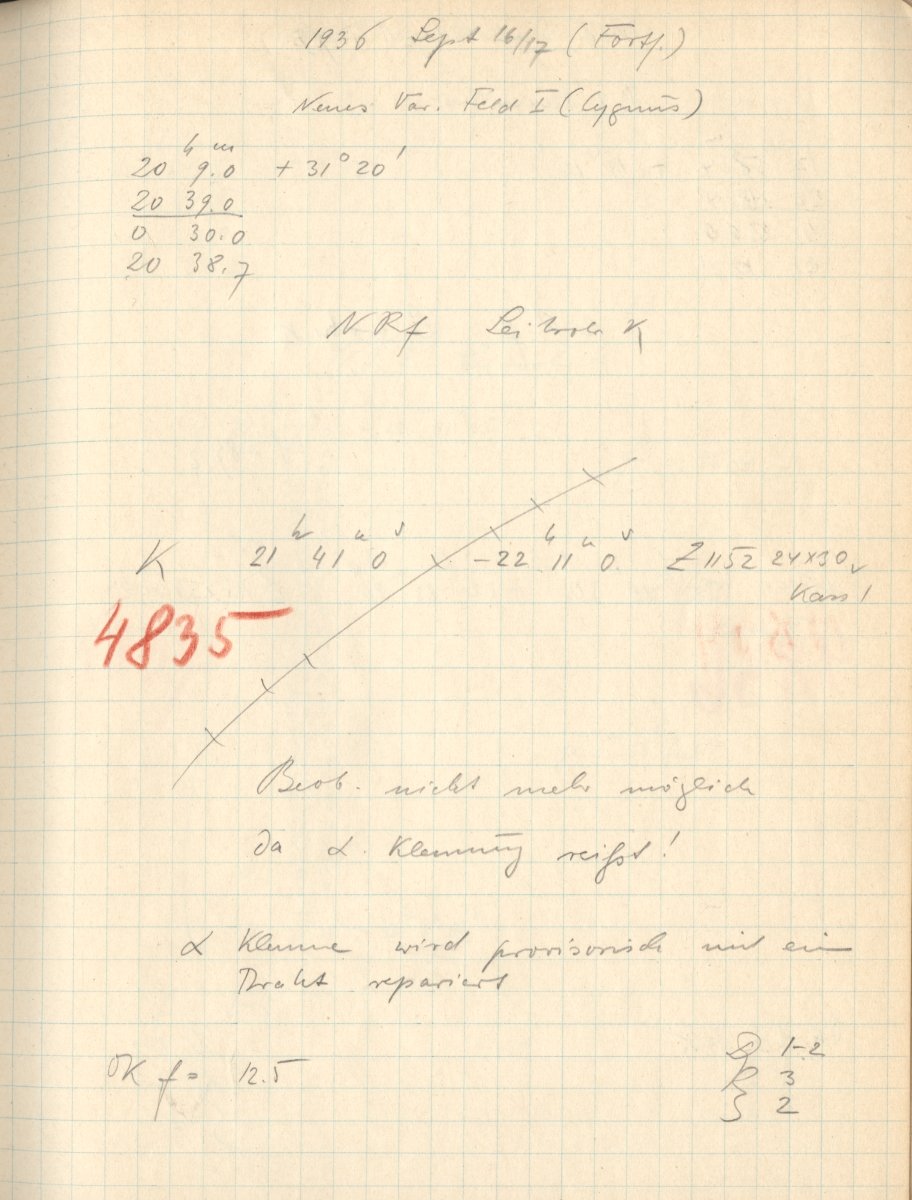 1936 Sept 16/17 (Fortf.)
Neues Var. Feld I (Cygnus)
20 h 9.0 m + 31° 20'
20 39.0
0 30.0
20 38.7
NRf Leitrohr K
K 21 h 41 m 0 s -22 h 11 m 0 s Z 1152 24x30
Kass 1
4835
Beob. nicht mehr möglich
da α. Klemmung reißt!
α Klemme wird provisorisch mit ein
Draht repariert
OK f = 12.5
1-2
3
2